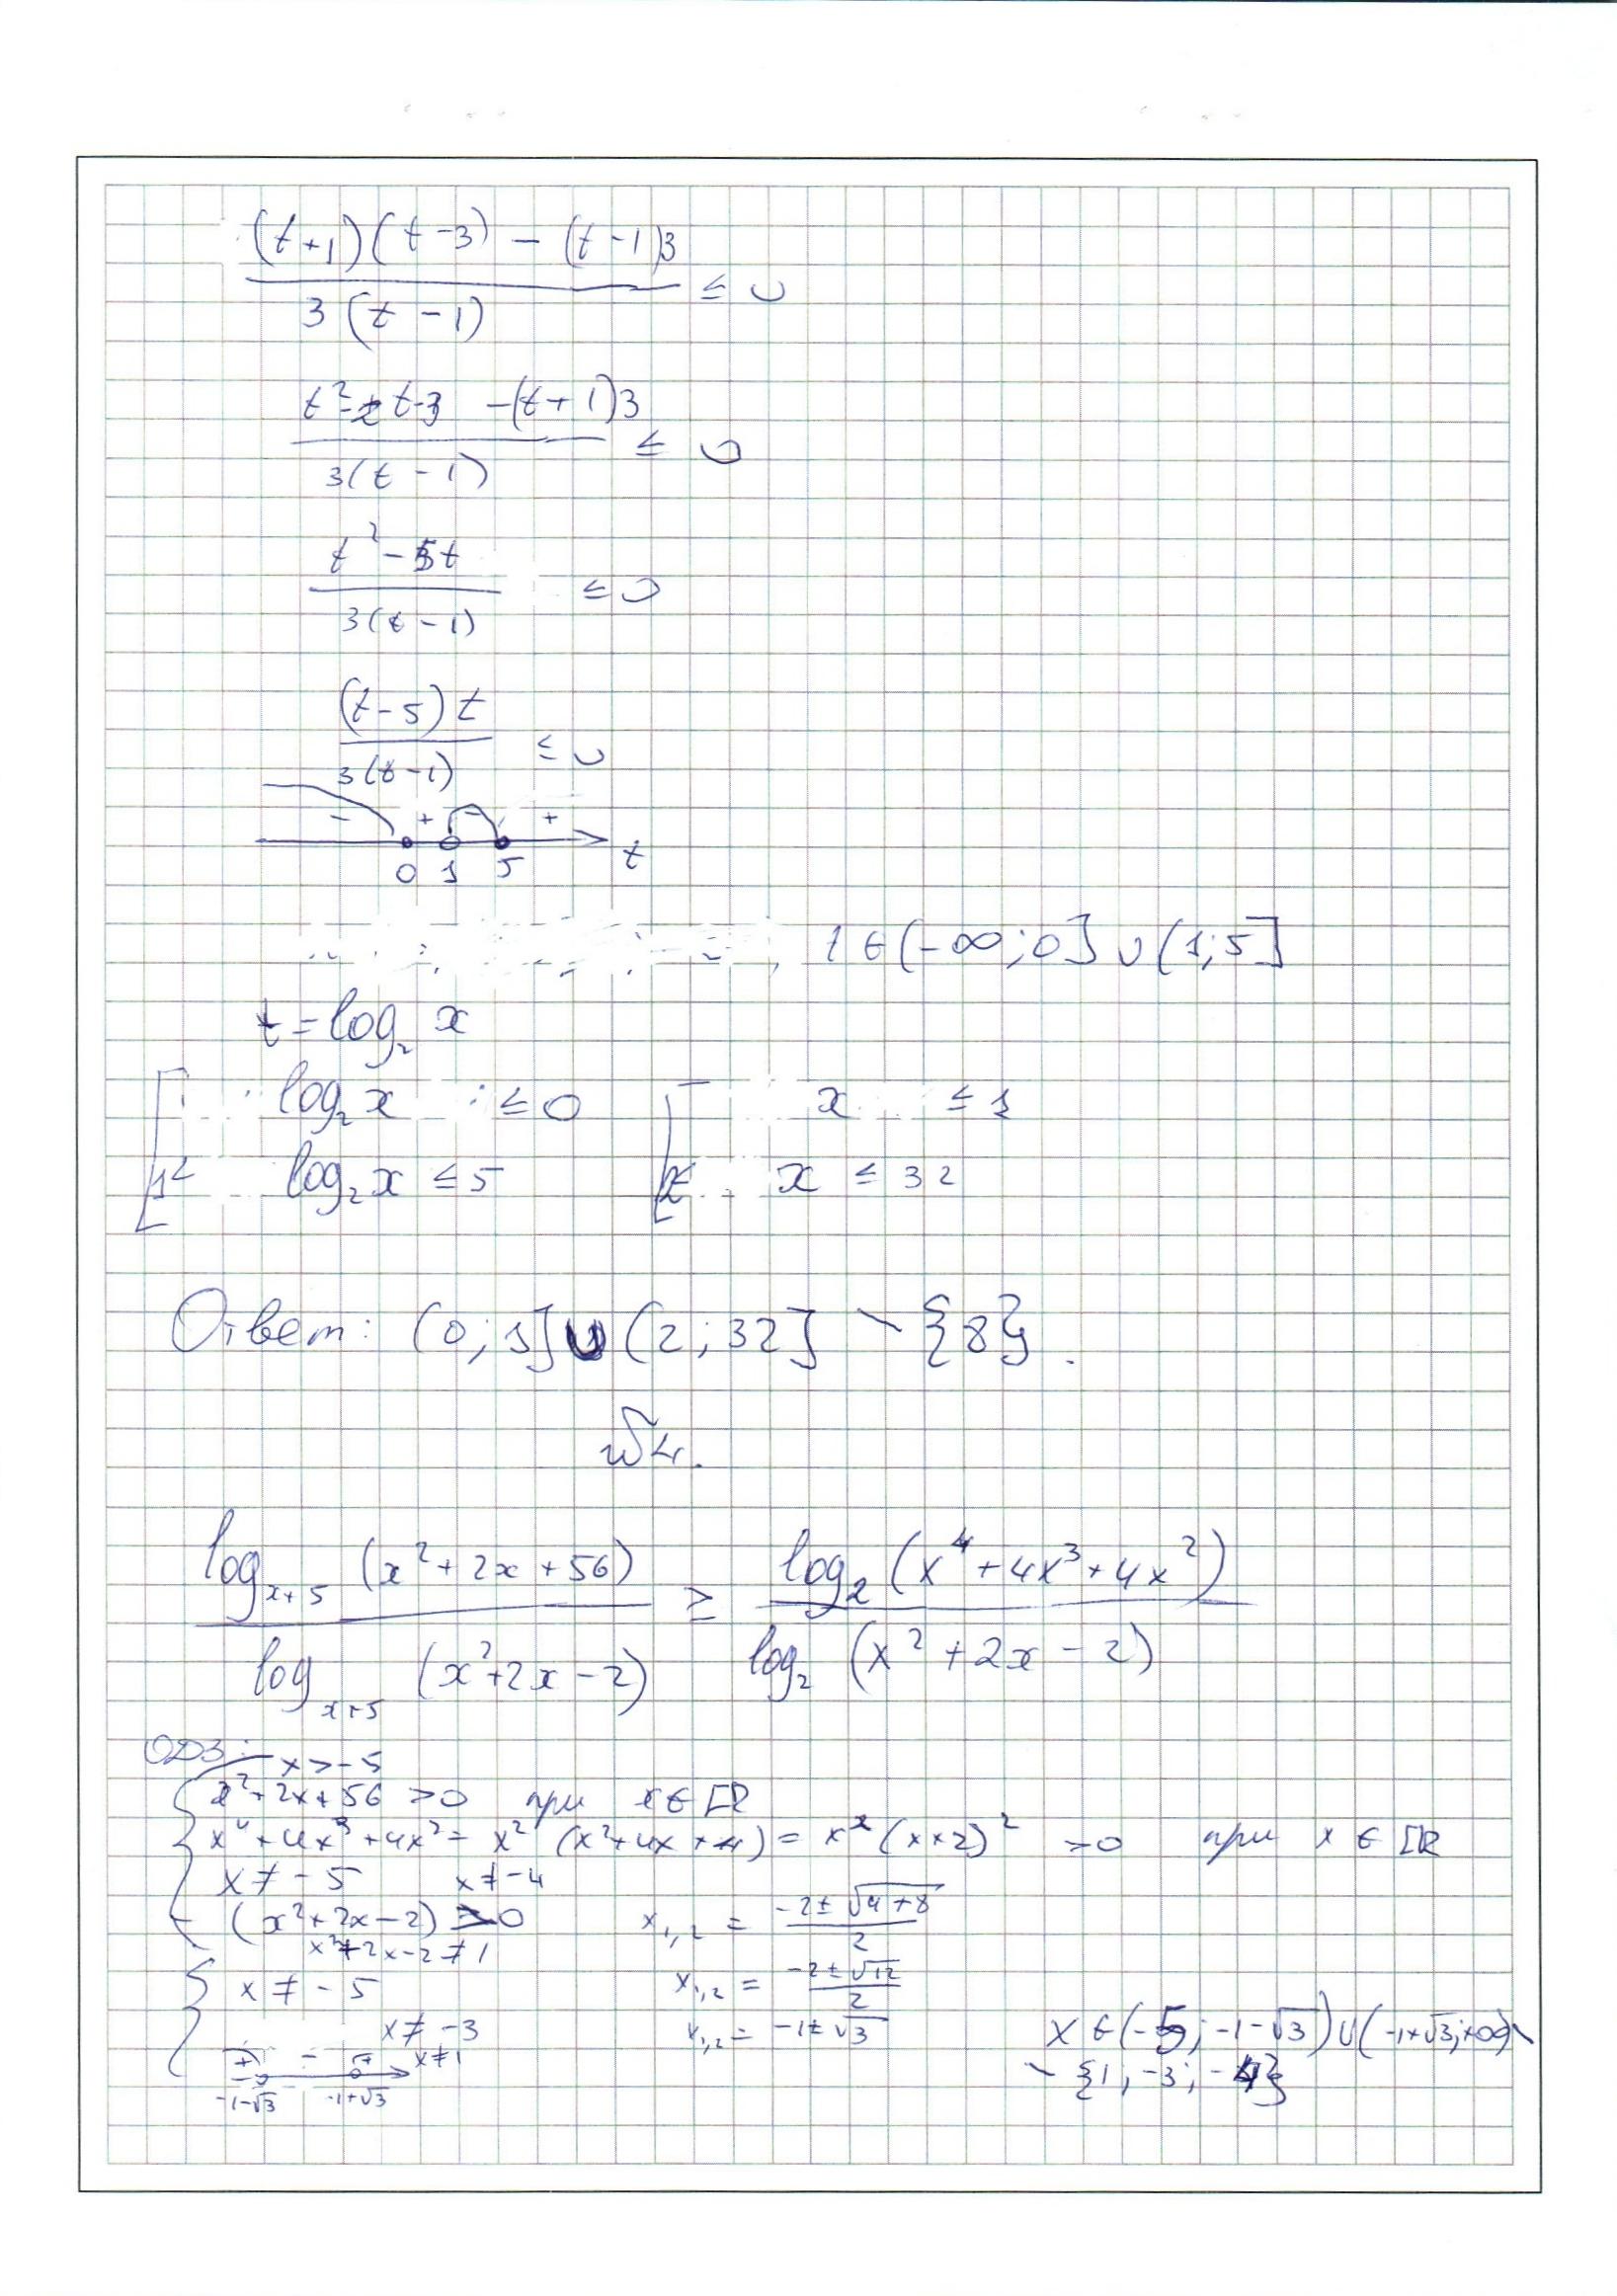 ((t+1)(t-3) - (t-1)3) / (3(t-1)) ≤ 0
(t²-2t-3 -(t+1)3) / (3(t-1)) ≤ 0
(t²-5t) / (3(t-1)) ≤ 0
((t-5)t) / (3(t-1)) ≤ 0
- + - +
0 1 5 t
t ∈ (-∞;0] ∪ (1;5]
t = log₂ x
log₂ x ≤ 0 x ≤ 1
1< log₂ x ≤ 5 x ≤ 32
Ответ: (0;1] ∪ (2;32] \ {8}.
№4.
log_{x+5} (x²+2x+56) / log_{x+5} (x²+2x-2) ≥ log₂ (x⁴+4x³+4x²) / log₂ (x²+2x-2)
ОДЗ: x > -5
x²+2x+56 > 0 при x ∈ ℝ
x⁴+4x³+4x² = x² (x²+4x+4) = x² (x+2)² >0 при x ∈ ℝ
x ≠ -5 x ≠ -4
(x²+2x-2) > 0 x₁,₂ = (-2±√(4+8)) / 2
x²+2x-2 ≠ 1
x ≠ -5 x₁,₂ = (-2±√12) / 2
x ≠ -3 x₁,₂ = -1±√3 x ∈ (-5; -1-√3) ∪ (-1+√3; +∞) \
+ - + x ≠ 1 \ {1; -3; -4}
-1-√3 -1+√3